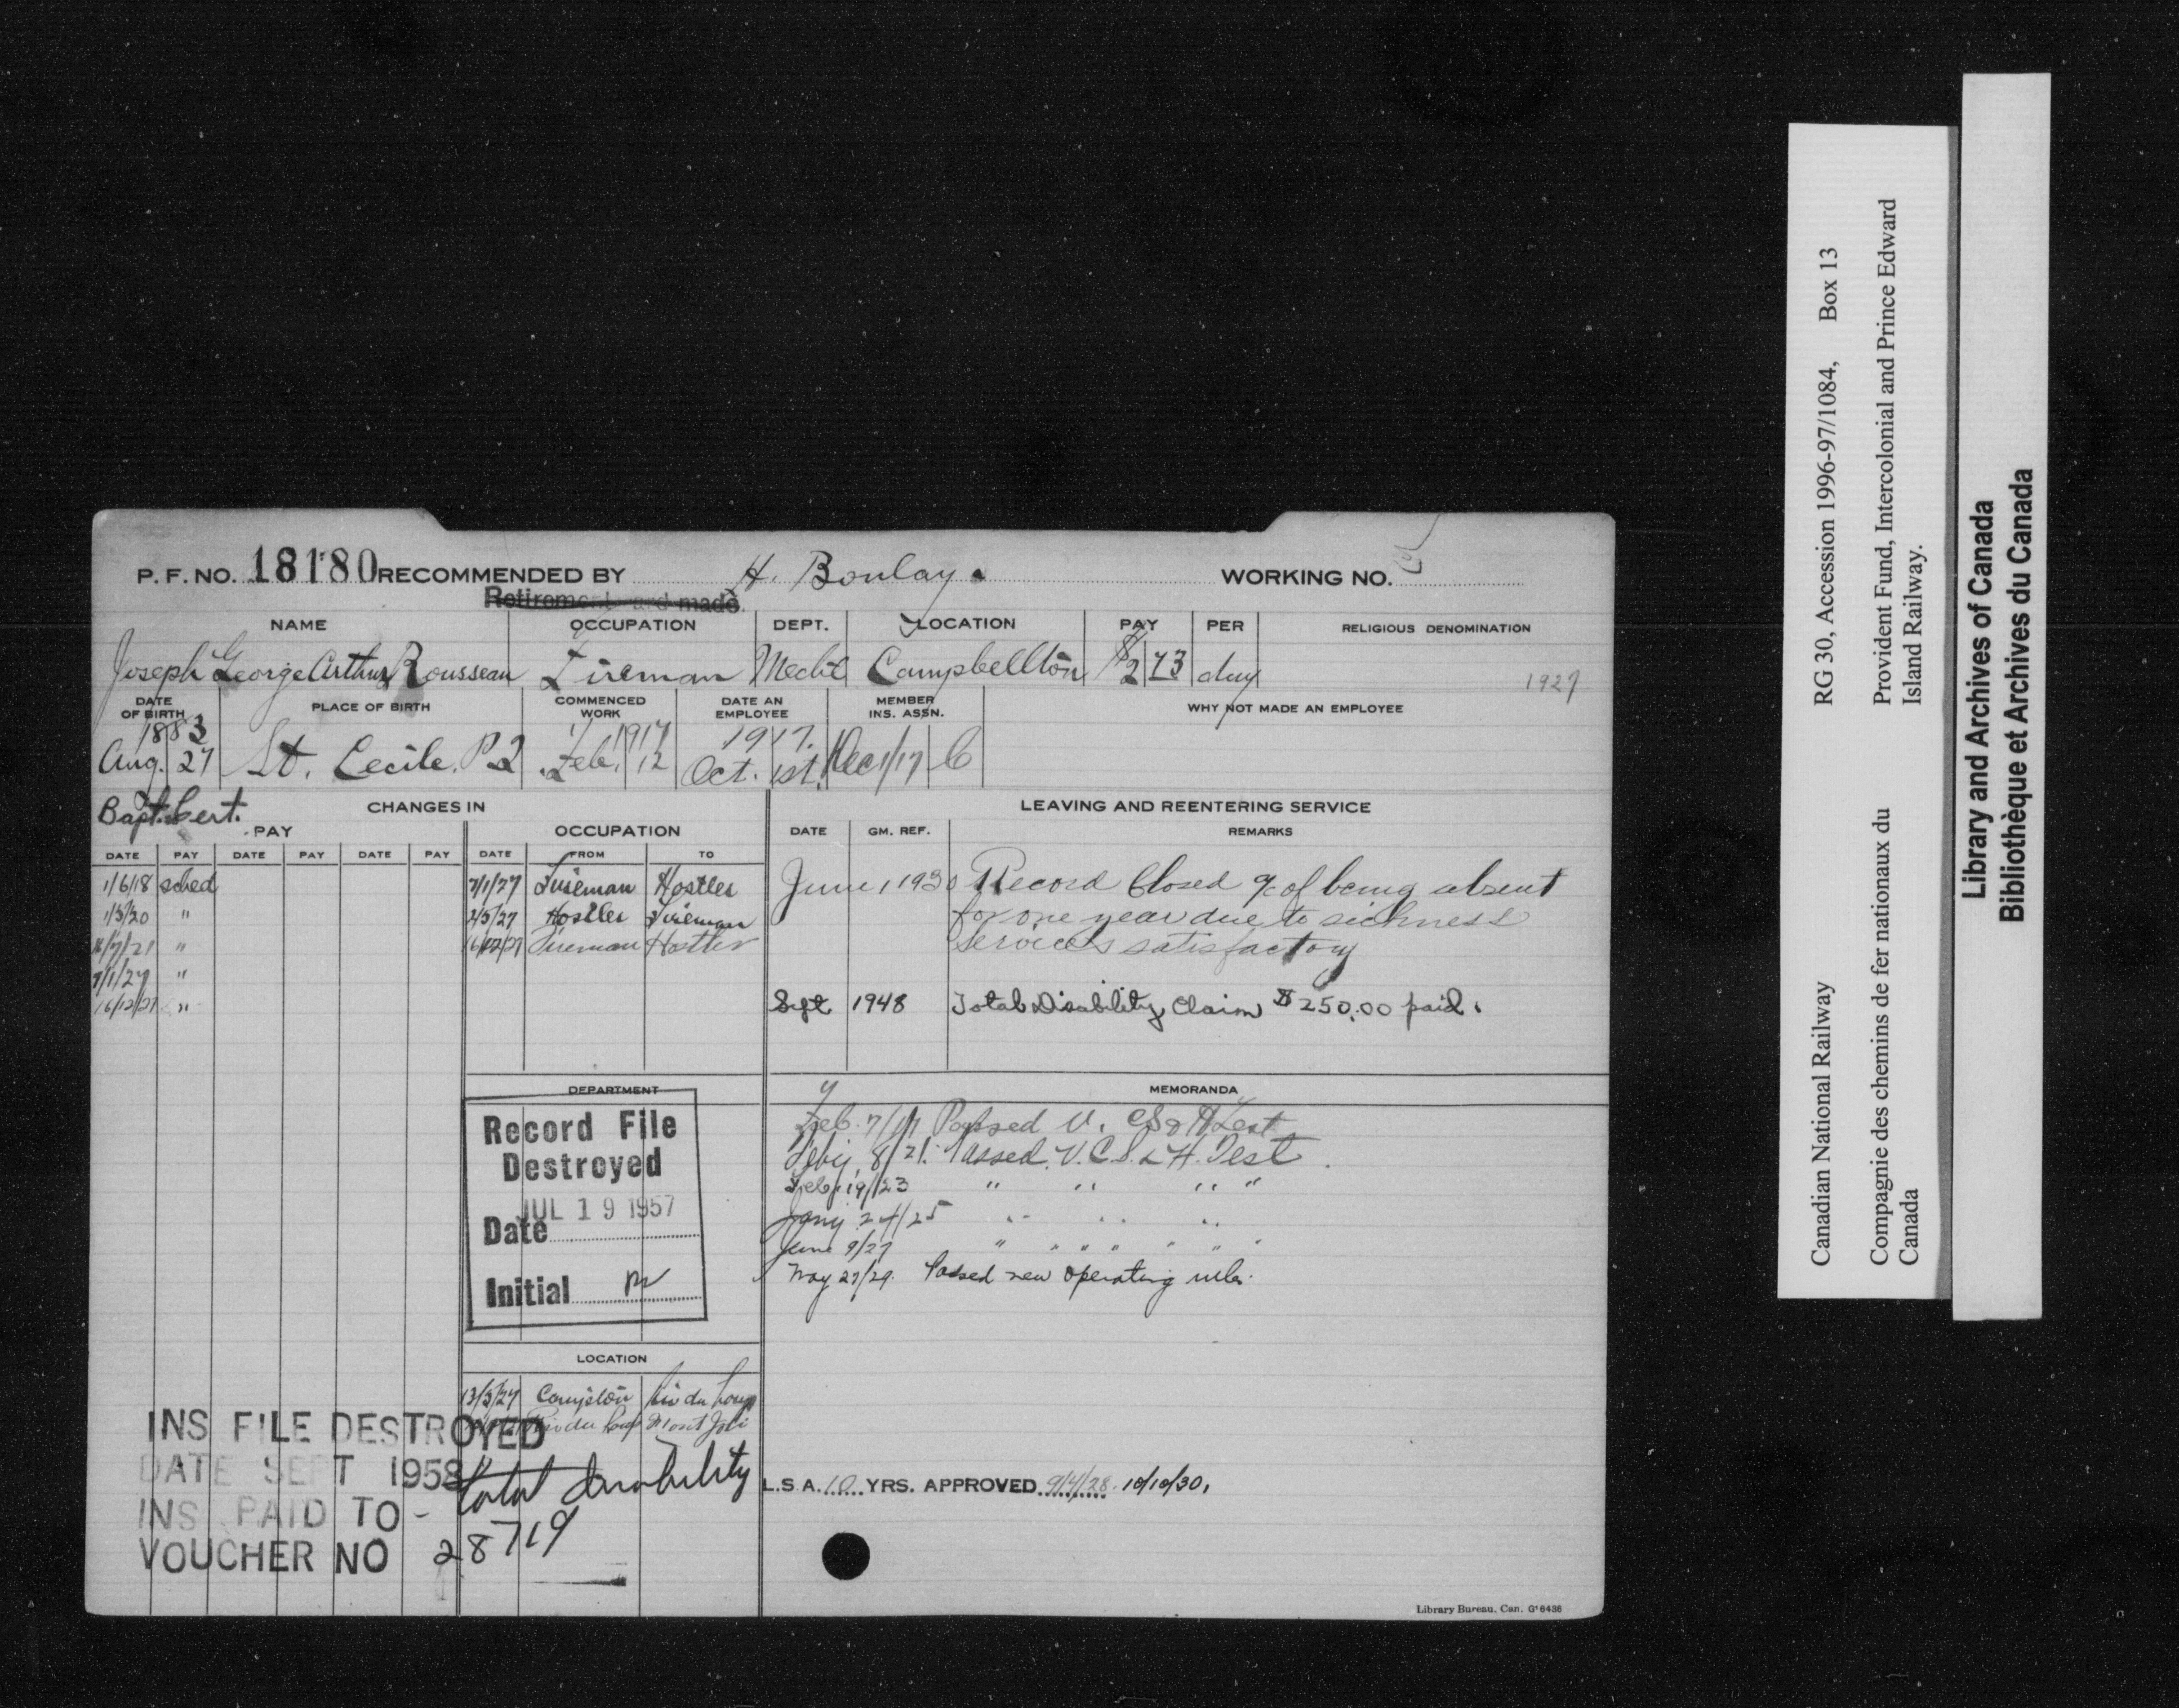 P. F. NO. 18180 RECOMMENDED BY H. Boulay. WORKING NO.
Retirement card made.
NAME OCCUPATION DEPT. LOCATION PAY PER RELIGIOUS DENOMINATION
Joseph George Arthur Rousseau Fireman Mechl Campbellton $2 73 day 1927
DATE OF BIRTH PLACE OF BIRTH COMMENCED WORK DATE AN EMPLOYEE MEMBER INS. ASSN. WHY NOT MADE AN EMPLOYEE
1883 1917 1917.
Aug. 27 St. Cecile. P2 Feb. 12 Oct. 1st. Dec 1/17 C
Bapt. Cert. CHANGES IN LEAVING AND REENTERING SERVICE
PAY OCCUPATION DATE GM. REF. REMARKS
DATE PAY DATE PAY DATE PAY DATE FROM TO
1/6/18 sched 7/1/27 Fireman Hostler June 1, 1930 Record Closed a/c of being absent
1/5/20 " 2/5/27 Hostler Fireman for one year due to sickness
16/7/21 " 16/12/27 Fireman Hostler Services satisfactory
7/1/27 "
16/12/27 " Sept 1948 Total Disability Claim $250.00 paid.
DEPARTMENT MEMORANDA
Record File
Destroyed
JUL 19 1957
Date
Initial
Feb. 7/17 Passed V. CS & H Test
Feby. 8/21. Passed V. C. S. & H. Test
Feb. 19/23 " " " "
Jany 24/25 " " "
June 9/27 " " " " " " "
May 27/29. Passed new operating rules.
LOCATION
13/5/27 Campbton Riv du Loup
Riv du Loup Mont Joli
INS FILE DESTROYED
DATE SEPT 1958
INS PAID TO - total disability
VOUCHER NO 28719
L.S.A. 10 YRS. APPROVED 9/4/28. 10/10/30.
Library Bureau, Can. G16436
Canadian National Railway RG 30, Accession 1996-97/1084, Box 13
Compagnie des chemins de fer nationaux du Provident Fund, Intercolonial and Prince Edward
Canada Island Railway.
Library and Archives of Canada
Bibliothèque et Archives du Canada